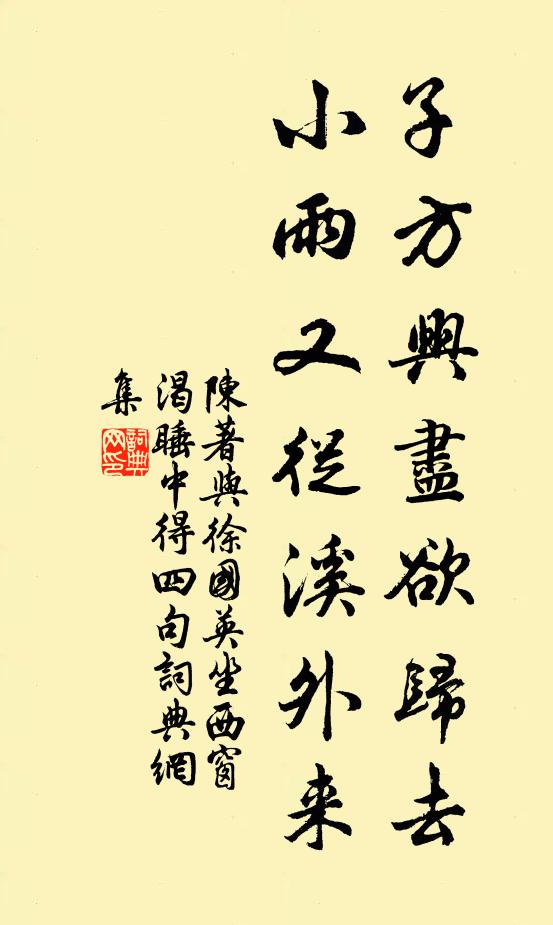 子方興盡欲歸去
小雨又從溪外来
陳著與徐國英坐西窗
渴睡中得四句詞典網
集
詞典
网印